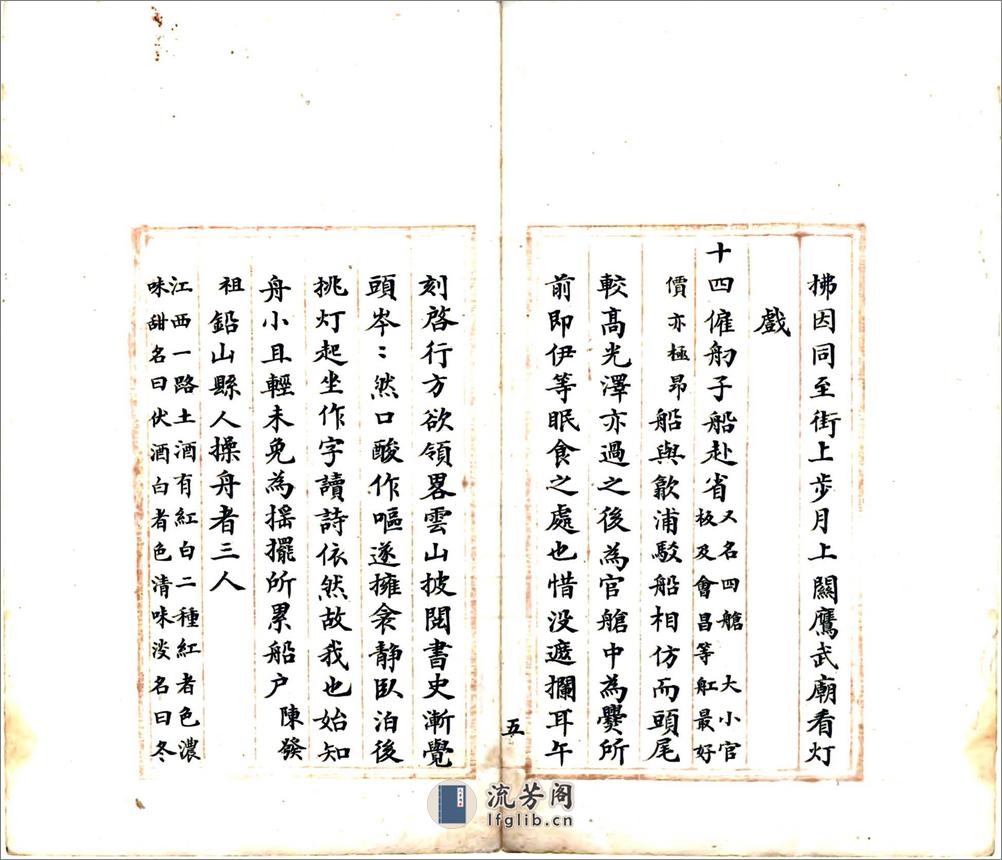 拂因同至街上步月上關鷹武廟看灯
戲
十四僱舠子船赴省又名四艙大小官
板及會昌等舡最好
價亦極昂船與歙浦駁船相仿而頭尾
較高光澤亦過之後為官艙中為爨所
前即伊等眠食之處也惜没遮攔耳午
五
刻啓行方欲領畧雲山披閲書史漸覺
頭岑〻然口酸作嘔遂擁衾静臥泊後
挑灯起坐作字讀詩依然故我也始知
舟小且輕未免為摇擺所累船户陳發
祖鉛山縣人操舟者三人
江西一路土酒有紅白二種紅者色濃
味甜名曰伏酒白者色清味淡名曰冬
流芳阁
lfglib.cn